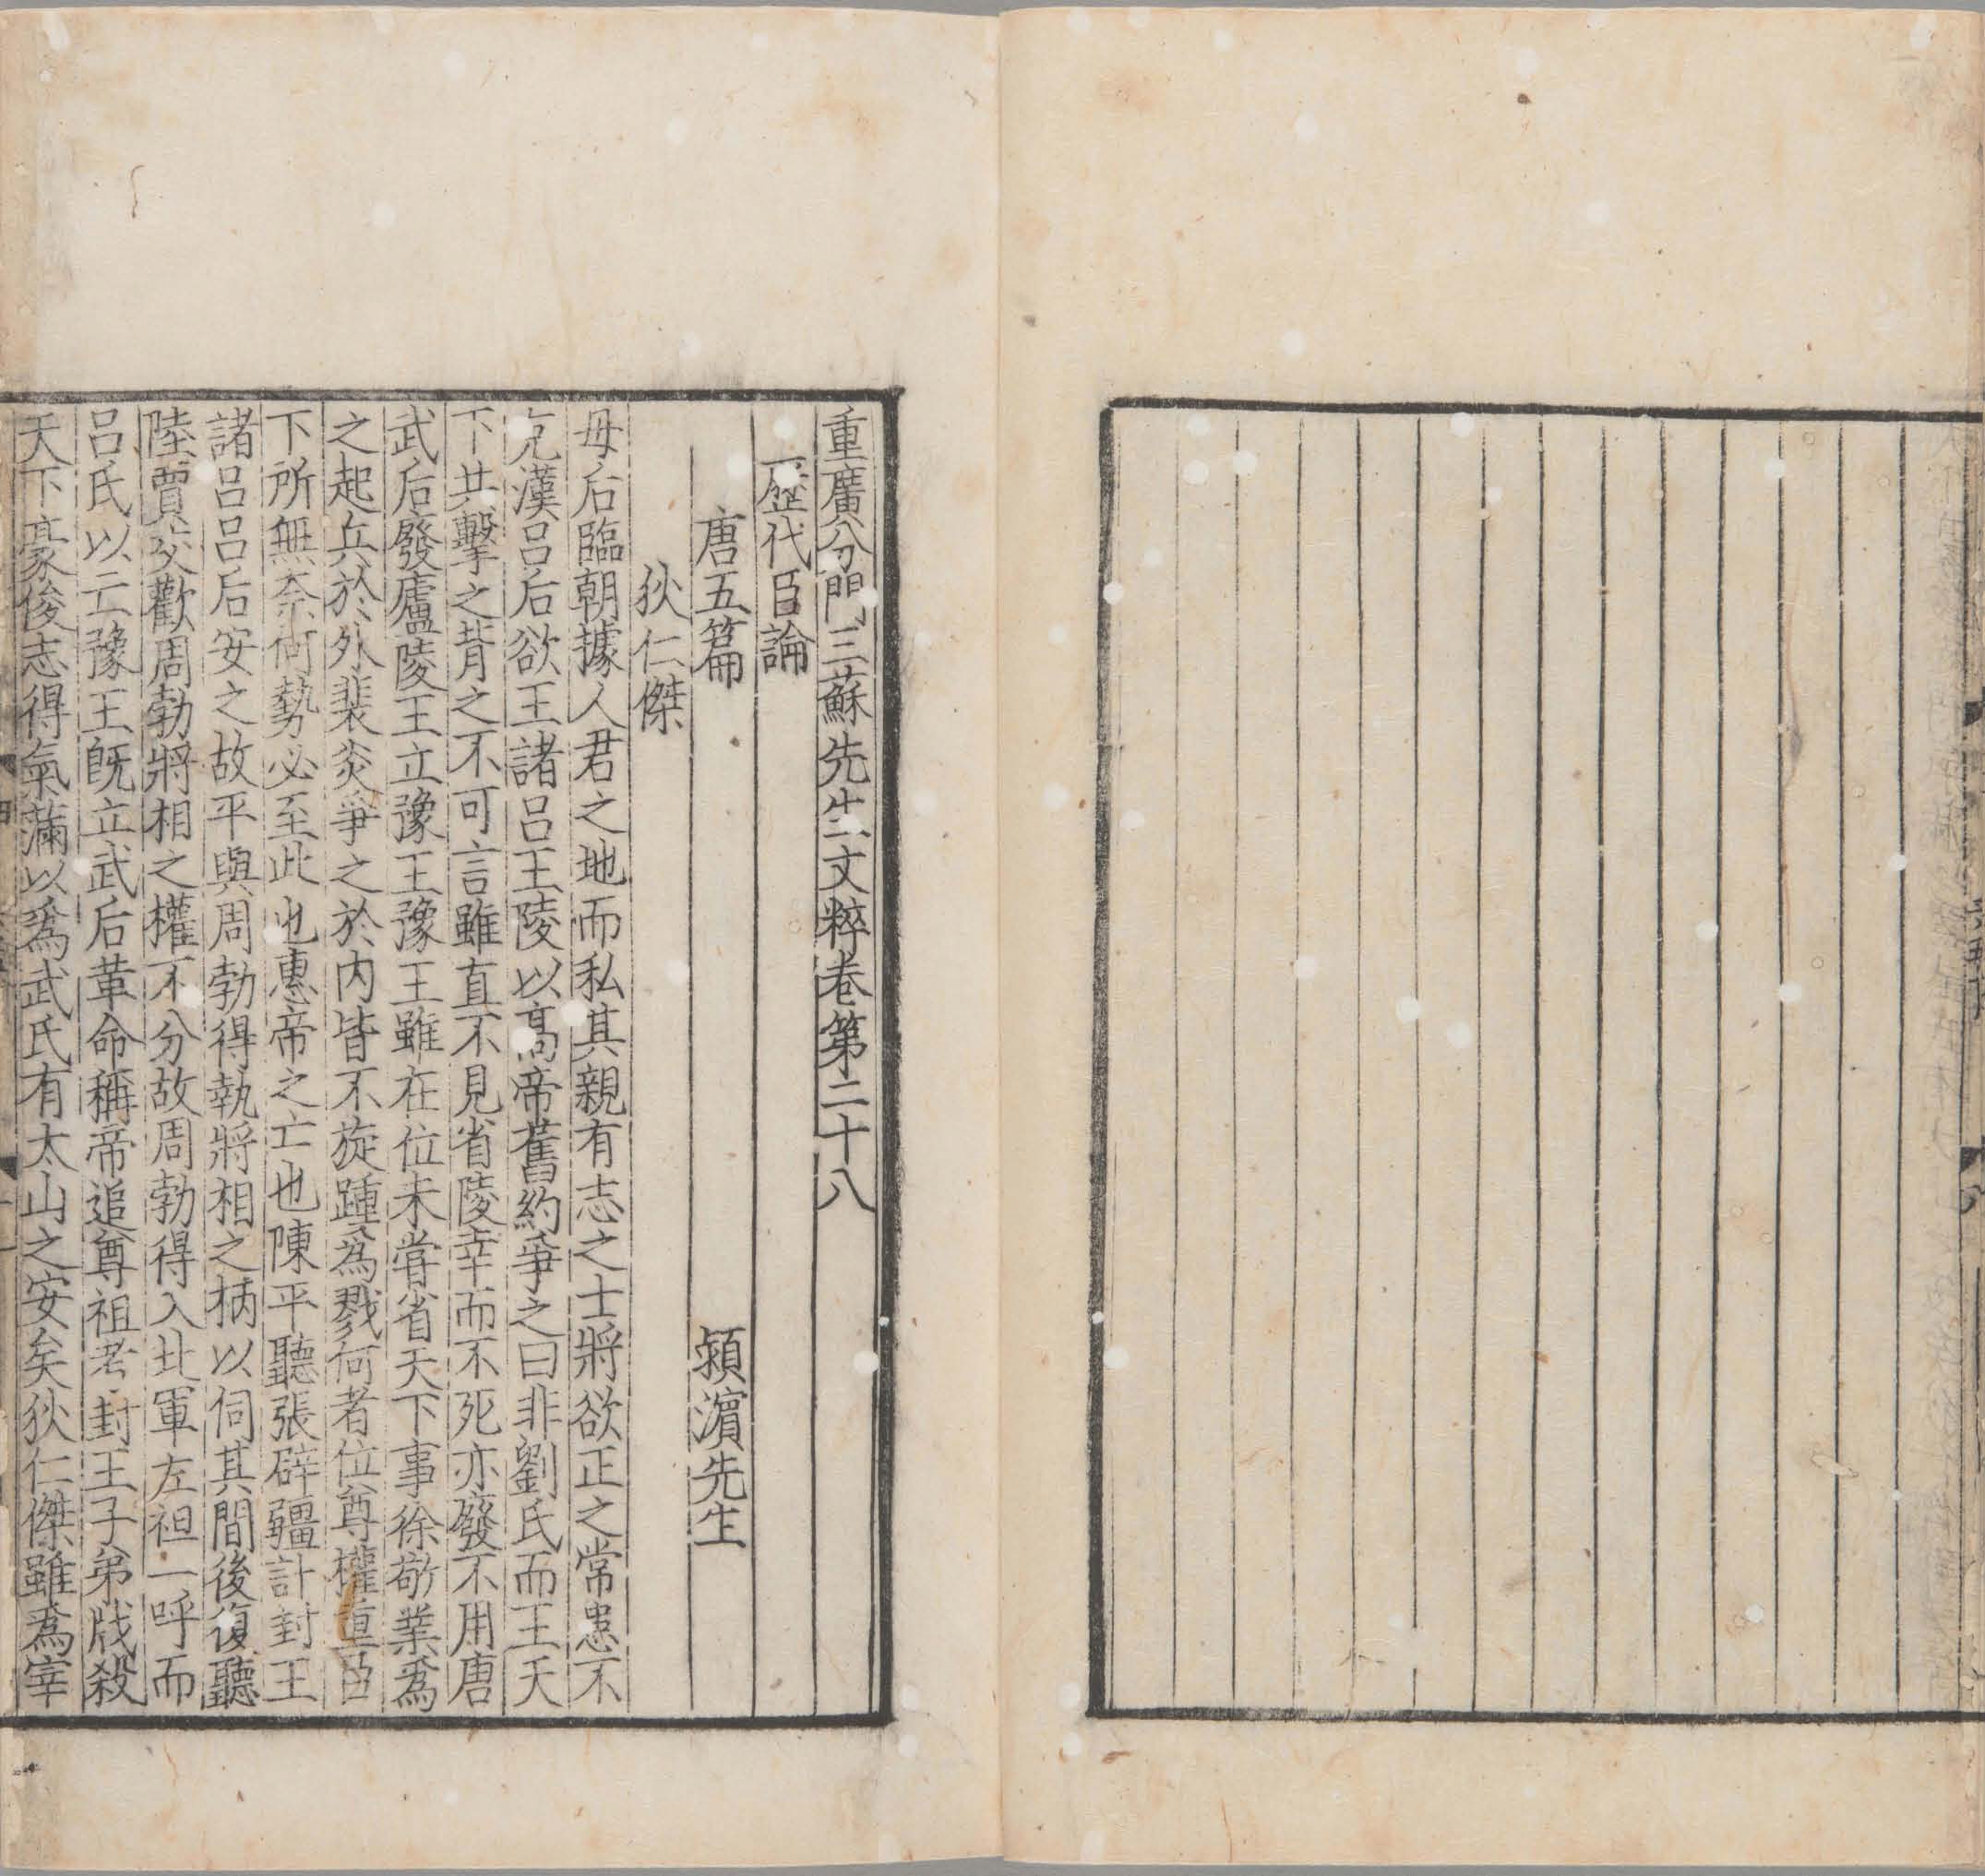 重廣分門三蘇先生文粹卷第二十八
歷代臣論
唐五篇 潁濵先生
狄仁傑
母后臨朝據人君之地而私其親有志之士將欲正之常患不
克漢呂后欲王諸呂王陵以高帝舊約爭之曰非劉氏而王天
下共擊之背之不可言雖直不見省陵幸而不死亦廢不用唐
武后發廬陵王立豫王豫王雖在位未甞省天下事徐敬業爲
之起兵於外裴炎爭之於內皆不旋踵爲戮何者位尊權重臣
下所無柰何勢必至此也惠帝之亡也陳平聽張辟疆計封王
諸呂呂后安之故平與周勃得執將相之柄以伺其間後復聽
陸賈交歡周勃將相之權不分故周勃得入北軍左袒一呼而
呂氏以亡豫王旣立武后革命稱帝追尊祖考封王子弟戕殺
天下豪俊志得氣滿以爲武氏有太山之安矣狄仁傑雖爲宰